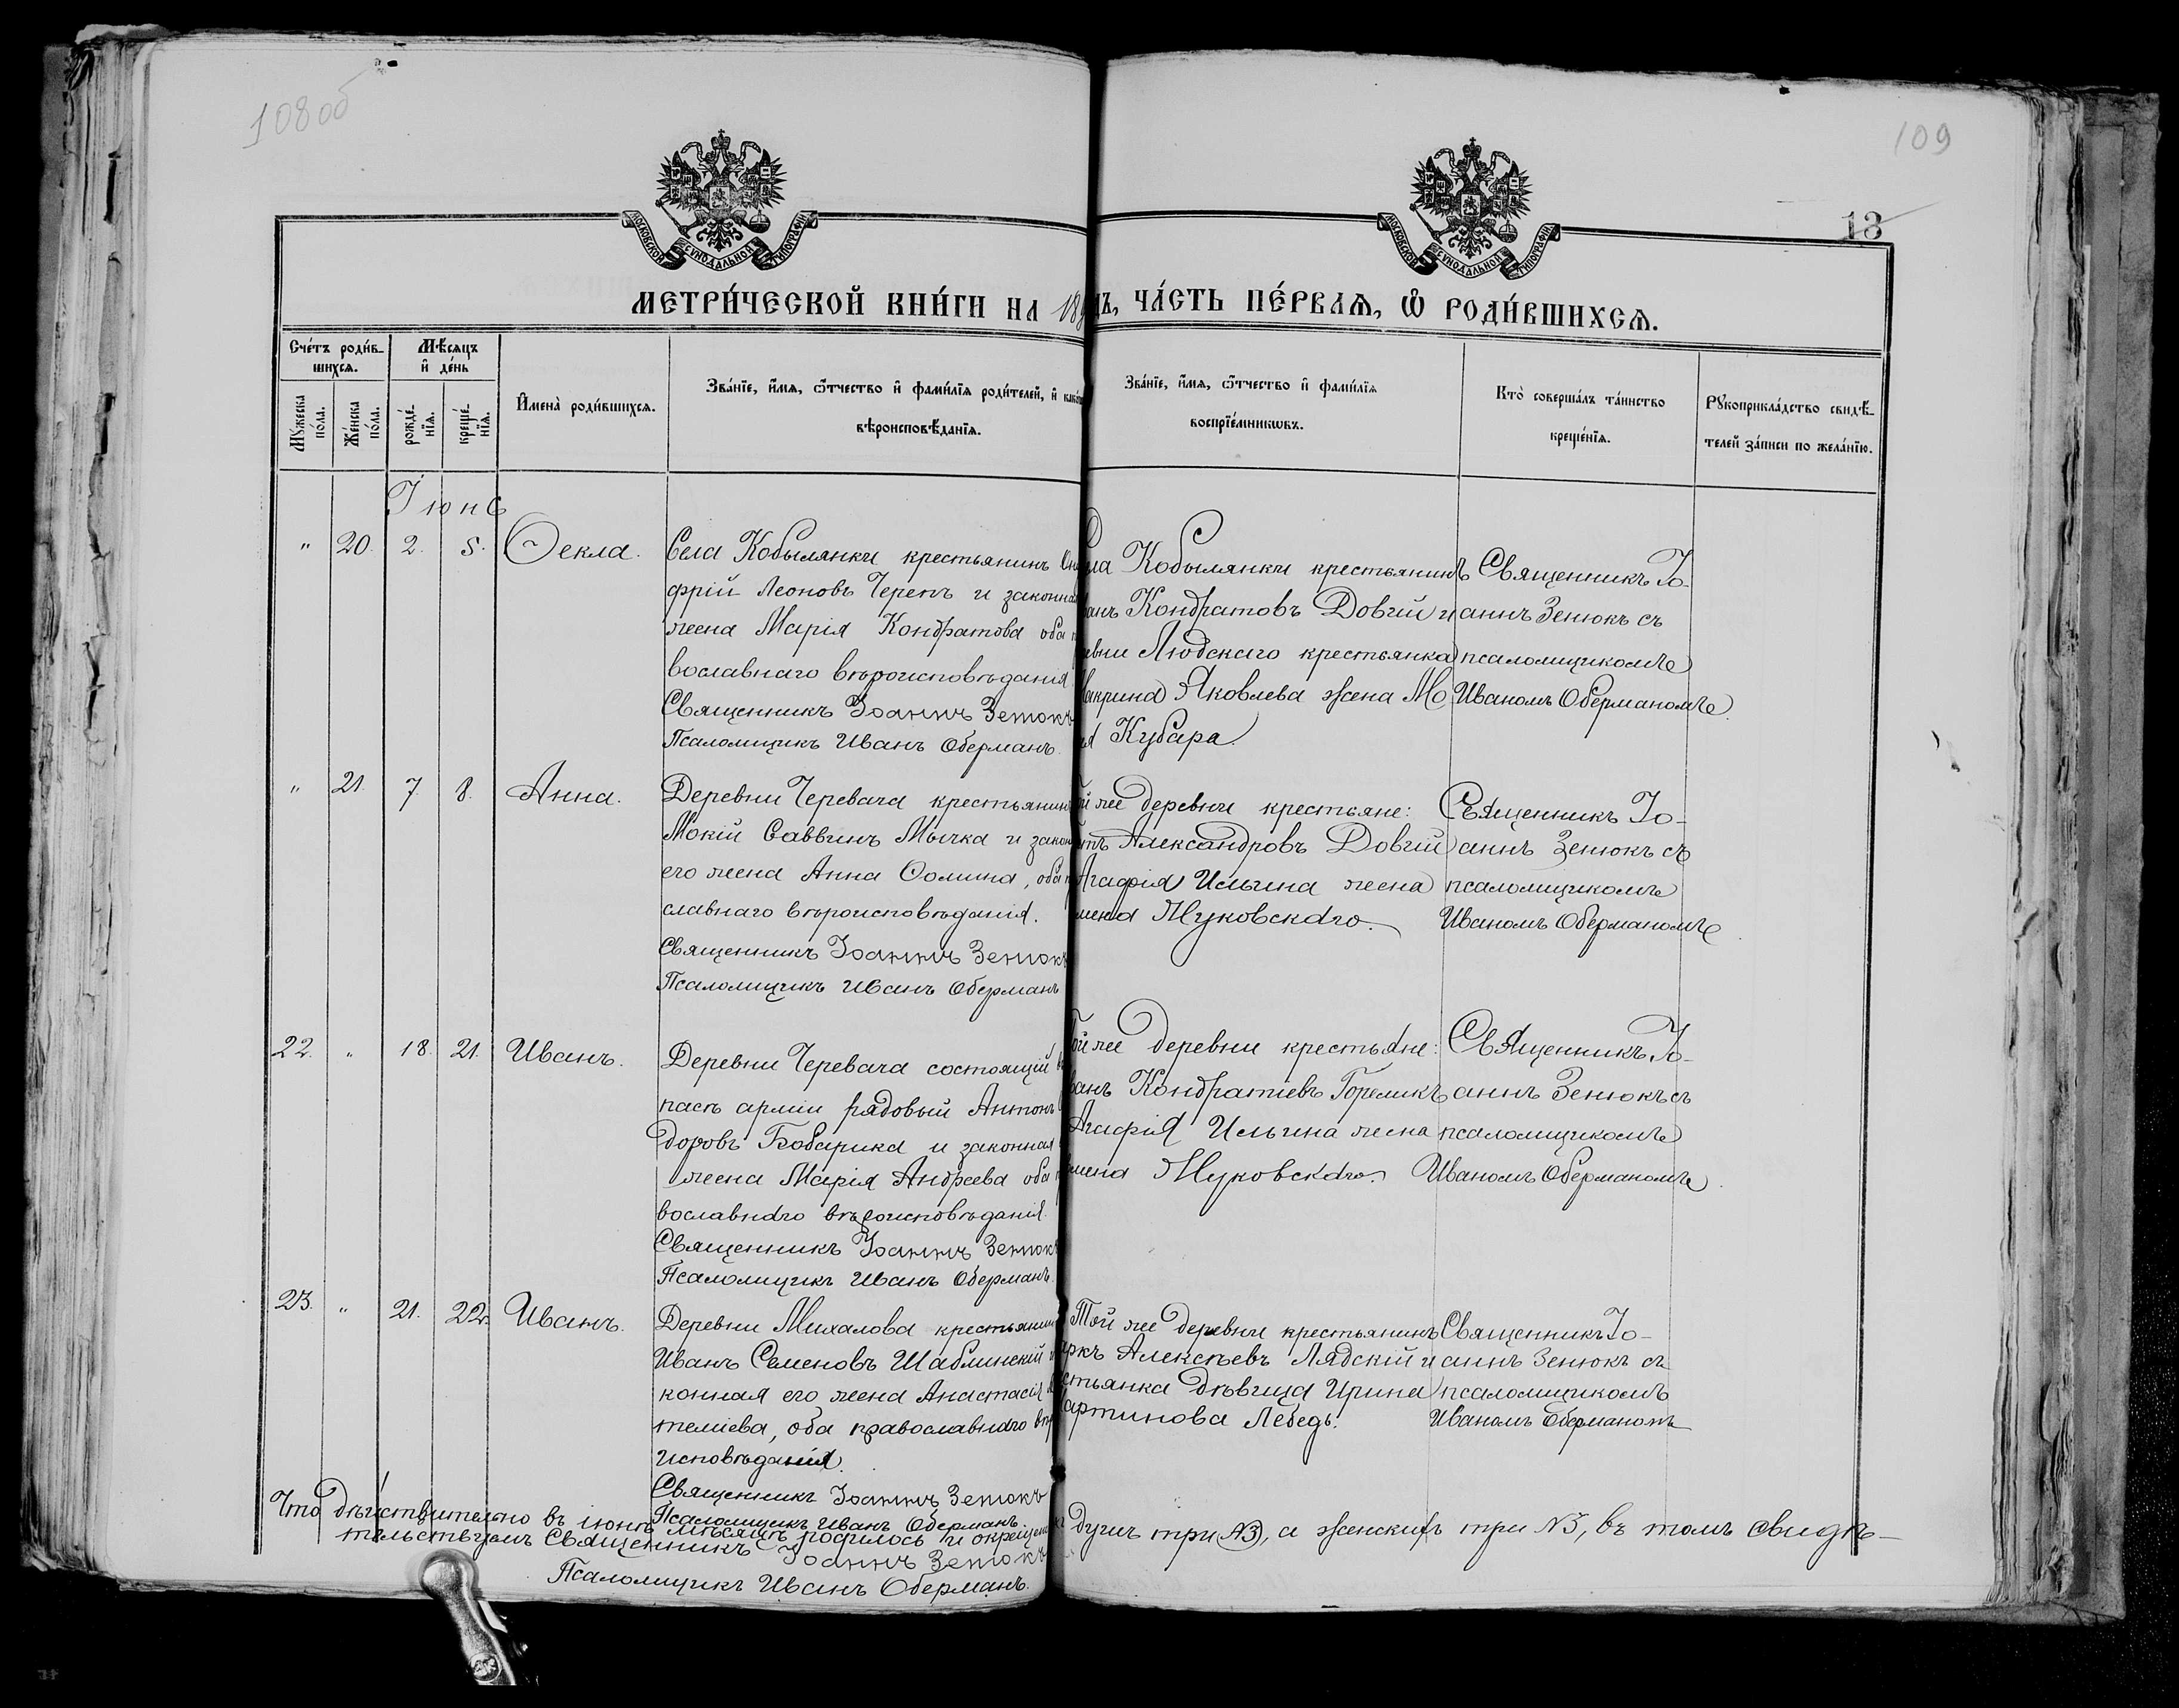 108об
109
МОСКОВСКОЙ СѴНОДАЛЬНОЙ ТИПОГРАФІИ
МОСКОВСКОЙ СѴНОДАЛЬНОЙ ТИПОГРАФІИ
18
МЕТРИ́ЧЕСКОЙ КНИ́ГИ НА 189
ДЪ, ЧА́СТЬ ПЕ́РВАѦ, Ѡ҆ РОДИ́ВШИХСѦ.
Сче́тъ роди́в-
шихсѧ.
Мѣ́сѧцъ
и҆ де́нь
Мꙋ́жеска
по́ла.
Же́нска
по́ла.
рожде́-
нїѧ.
креще́-
нїѧ.
И҆мена̀ роди́вшихсѧ.
Зва́нїе, и҆́мѧ, ѻ҆́тчество и҆ фами́лїѧ роди́телей, и҆ како́
вѣроисповѣ́данїѧ.
Зва́нїе, и҆́мѧ, ѻ҆́тчество и҆ фами́лїѧ
воспрїе́мникѡвъ.
Кто̀ соверша́лъ та́инство
креще́нїѧ.
Рꙋкоприкла́дство свидѣ́-
телей за́писи по жела́нїю.
Іюнь
" 20. 2. 5. Ѳекла.
Села Кобылянки крестьянинъ Они
фрій Леоновъ Черепъ и законная
жена Марія Кондратова оба п
вославнаго вѣроисповѣданія
Священникъ Іоаннъ Зенюкъ
Псаломщикъ Иванъ Оберманъ.
ла Кобылянки крестьянинъ
ванъ Кондратовъ Довгій и
евни Людскаго крестьянка
акрина Яковлева жена Мо
ея Кубара.
Священникъ Іо-
аннъ Зенюкъ съ
псаломщикомъ
Иваномъ Оберманомъ.
" 21. 7. 8. Анна.
Деревни Черевача крестьянинъ
Мокій Саввинъ Мычка и закон
его жена Анна Ѳомина, оба п
славнаго вѣроисповѣданія.
Священникъ Іоаннъ Зенюкъ
Псаломщикъ Иванъ Оберманъ
й же деревни крестьяне:
тъ Александровъ Довгій
Агафія Ильина жена
мена Жуковскаго.
Священникъ Іо-
аннъ Зенюкъ съ
псаломщикомъ
Иваномъ Оберманомъ.
22. " 18. 21. Иванъ.
Деревни Черевача состоящій въ
пасѣ арміи рядовый Антонъ
доровъ Бобарика и законная
жена Марія Андреева оба п
вославнаго вѣроисповѣданія.
Священникъ Іоаннъ Зенюкъ
Псаломщикъ Иванъ Оберманъ.
ой же деревни крестьяне:
ванъ Кондратіевъ Горемикъ
Агафія Ильина жена
мена Жуковскаго.
Священникъ Іо-
аннъ Зенюкъ съ
псаломщикомъ
Иваномъ Оберманомъ.
23. " 21. 22. Иванъ.
Деревни Михалова крестьянин
Иванъ Семеновъ Шаблинскій и
конная его жена Анастасія
теліева, оба православнаго вѣр
исповѣданія.
Священникъ Іоаннъ Зенюкъ
Псаломщикъ Иванъ Оберманъ.
Той же деревни крестьянинъ
ркъ Алексѣевъ Лядскій и
стьянка дѣвица Ирина
артинова Лебедь.
Священникъ Іо-
аннъ Зенюкъ съ
псаломщикомъ
Иваномъ Оберманомъ
Что дѣйствительно въ іюнѣ мѣсяцѣ родилось и окрещено
душъ три №3, а женскихъ три №3, въ томъ свидѣ-
тельствуемъ Священникъ Іоаннъ Зенюкъ
Псаломщикъ Иванъ Оберманъ.